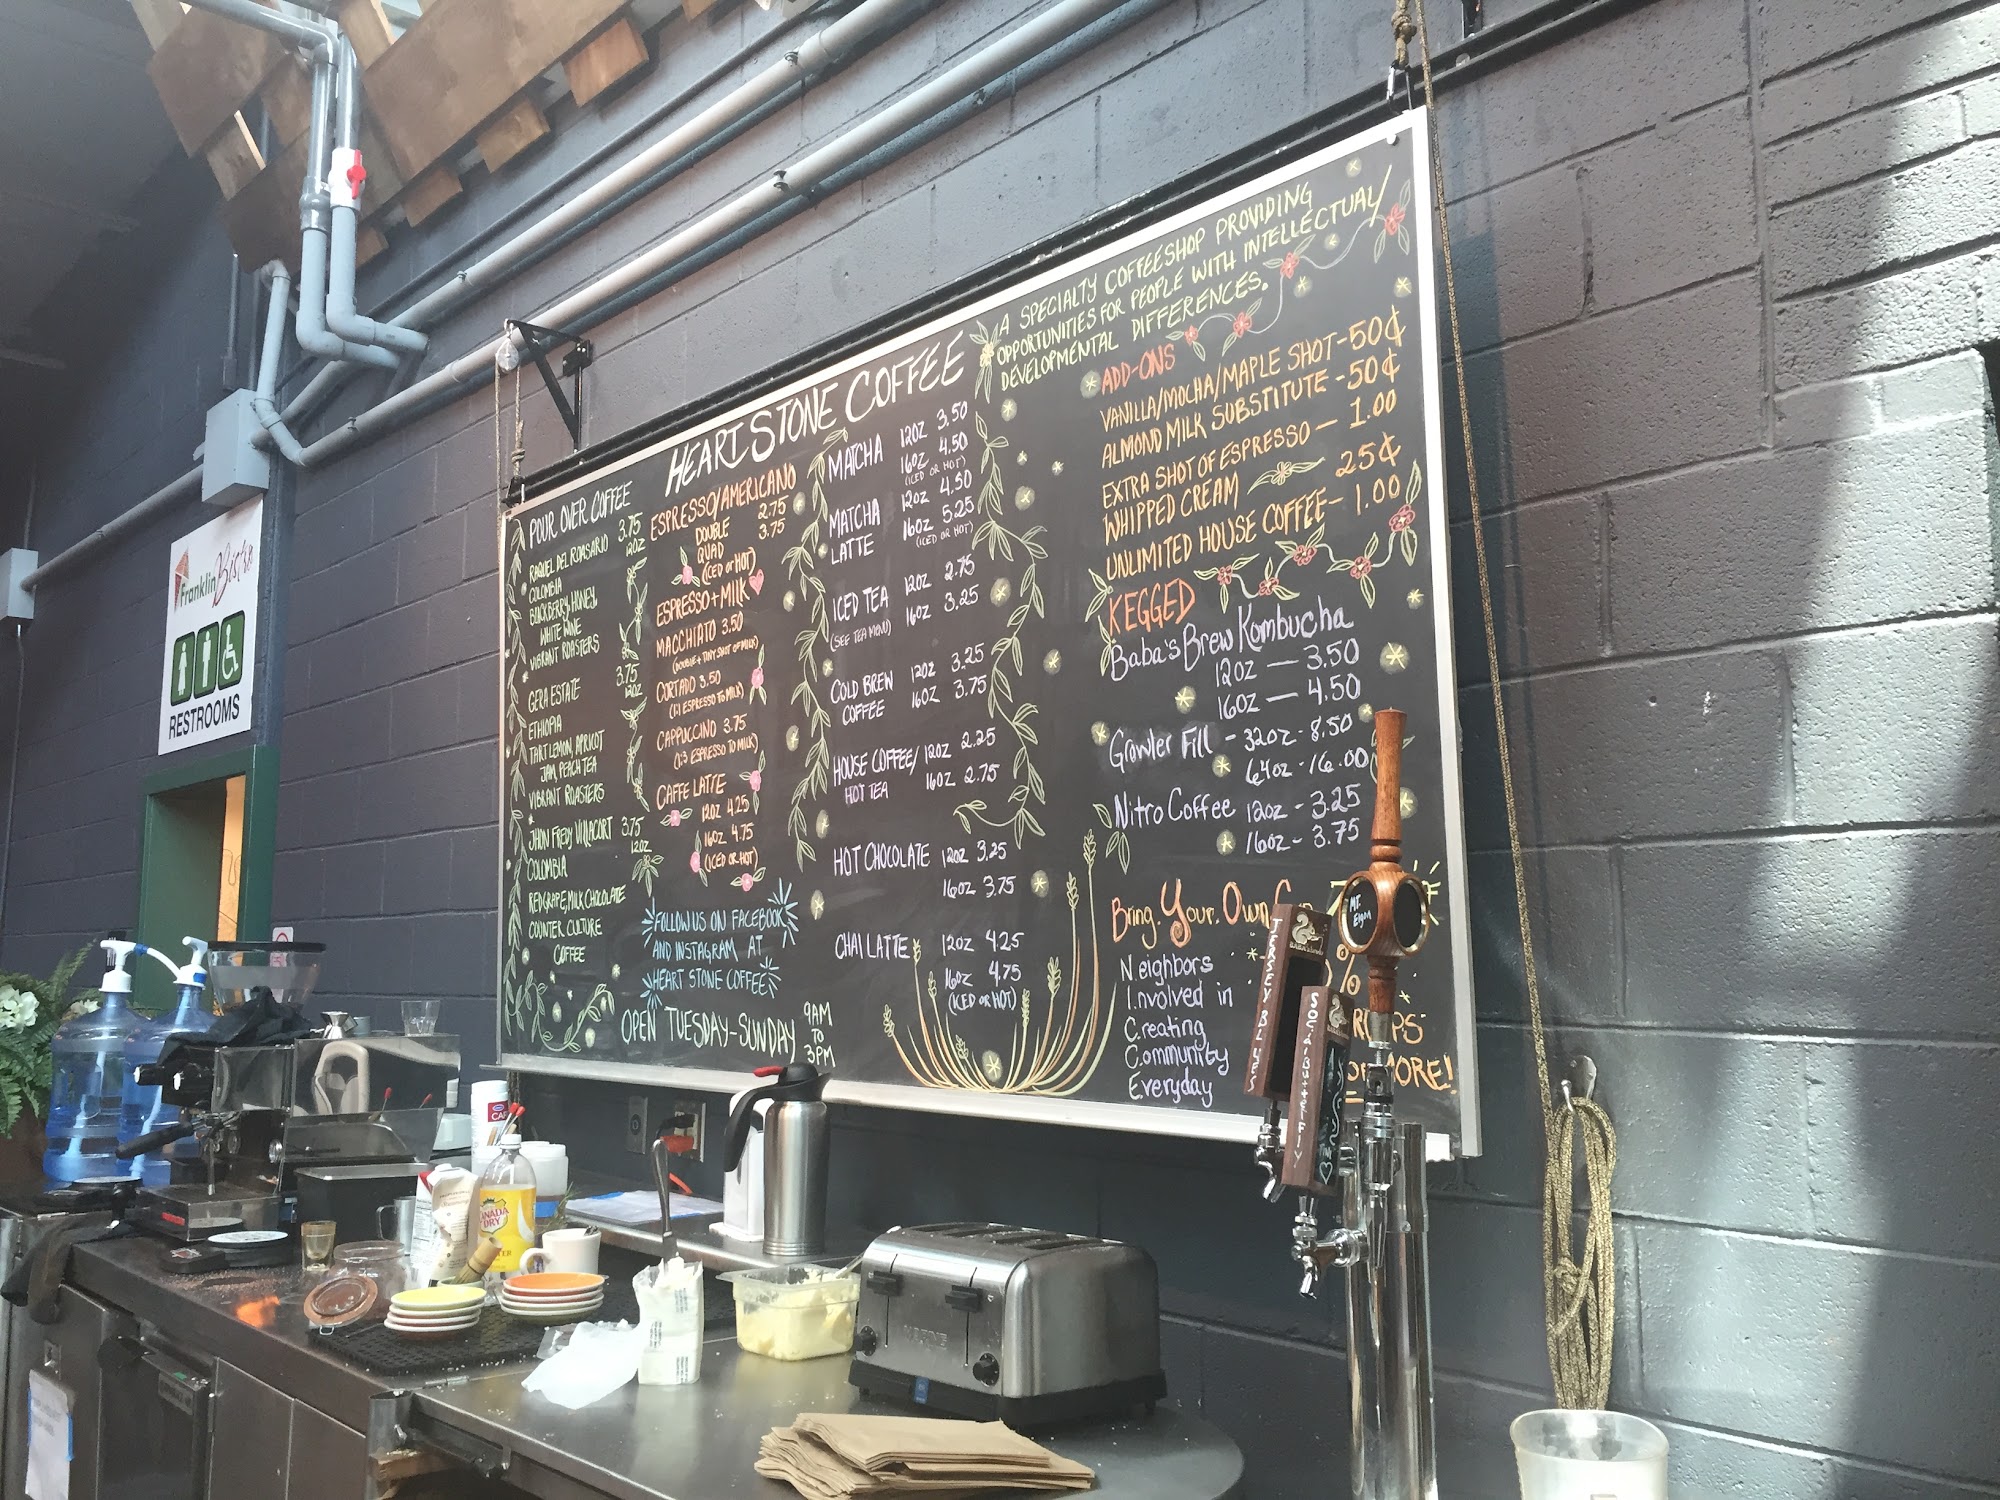 HEART STONE COFFEE
A SPECIALTY COFFEESHOP PROVIDING
OPPORTUNITIES FOR PEOPLE WITH INTELLECTUAL/
DEVELOPMENTAL DIFFERENCES.
POUR OVER COFFEE
3.75
RAQUEL DEL ROASARIO 12OZ
COLOMBIA
BLACKBERRY, HONEY,
WHITE WINE
VIBRANT ROASTERS
3.75
GERA ESTATE 12OZ
ETHIOPIA
TART LEMON, APRICOT
JAM, PEACH TEA
VIBRANT ROASTERS
JHON FREDY VILLACORT 3.75
COLOMBIA 12OZ
RED GRAPE, MILK CHOCOLATE
COUNTER CULTURE
COFFEE
ESPRESSO/AMERICANO
DOUBLE 2.75
QUAD 3.75
(ICED OR HOT)
ESPRESSO + MILK
MACCHIATO 3.50
(DOUBLE + TINY SHOT OF MILK)
CORTADO 3.50
(1:1 ESPRESSO TO MILK)
CAPPUCCINO 3.75
(1:3 ESPRESSO TO MILK)
CAFFE LATTE
12OZ 4.25
16OZ 4.75
(ICED OR HOT)
FOLLOW US ON FACEBOOK
AND INSTAGRAM AT
HEART STONE COFFEE
OPEN TUESDAY-SUNDAY 9AM
TO
3PM
MATCHA 12OZ 3.50
16OZ 4.50
(ICED OR HOT)
MATCHA 12OZ 4.50
LATTE 16OZ 5.25
(ICED OR HOT)
ICED TEA 12OZ 2.75
(SEE TEA MENU) 16OZ 3.25
COLD BREW 12OZ 3.25
COFFEE 16OZ 3.75
HOUSE COFFEE/ 12OZ 2.25
HOT TEA 16OZ 2.75
HOT CHOCOLATE 12OZ 3.25
16OZ 3.75
CHAI LATTE 12OZ 4.25
16OZ 4.75
(ICED OR HOT)
ADD-ONS
VANILLA/MOCHA/MAPLE SHOT-50¢
ALMOND MILK SUBSTITUTE-50¢
EXTRA SHOT OF ESPRESSO — 1.00
WHIPPED CREAM 25¢
UNLIMITED HOUSE COFFEE- 1.00
KEGGED
Baba's Brew Kombucha
12OZ — 3.50
16OZ — 4.50
Growler Fill - 32OZ - 8.50
64OZ - 16.00
Nitro Coffee 12OZ - 3.25
16OZ - 3.75
Bring. Your. Own.
N.eighbors
I.nvolved in
C.reating
C.ommunity
E.veryday
%
OF MORE!
Franklin Bistro
RESTROOMS
MT. Elgon
TERSEY BLUES
SOCIAL BUTTERFLY
CANADA
DRY